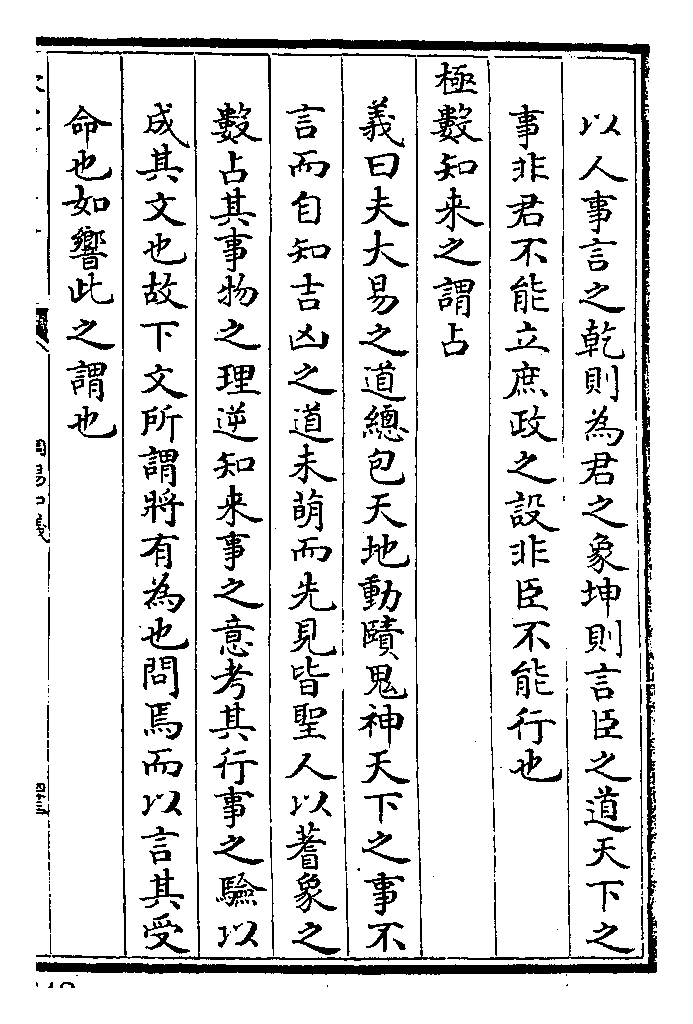 以人事言之乾則為君之象坤則言臣之道天下之
事非君不能立庶政之設非臣不能行也
極數知来之謂占
義曰夫大易之道總包天地動賾鬼神天下之事不
言而自知吉凶之道未萌而先見皆聖人以蓍象之
數占其事物之理逆知来事之意考其行事之驗以
成其文也故下文所謂將有為也問焉而以言其受
命也如響此之謂也
周易口義